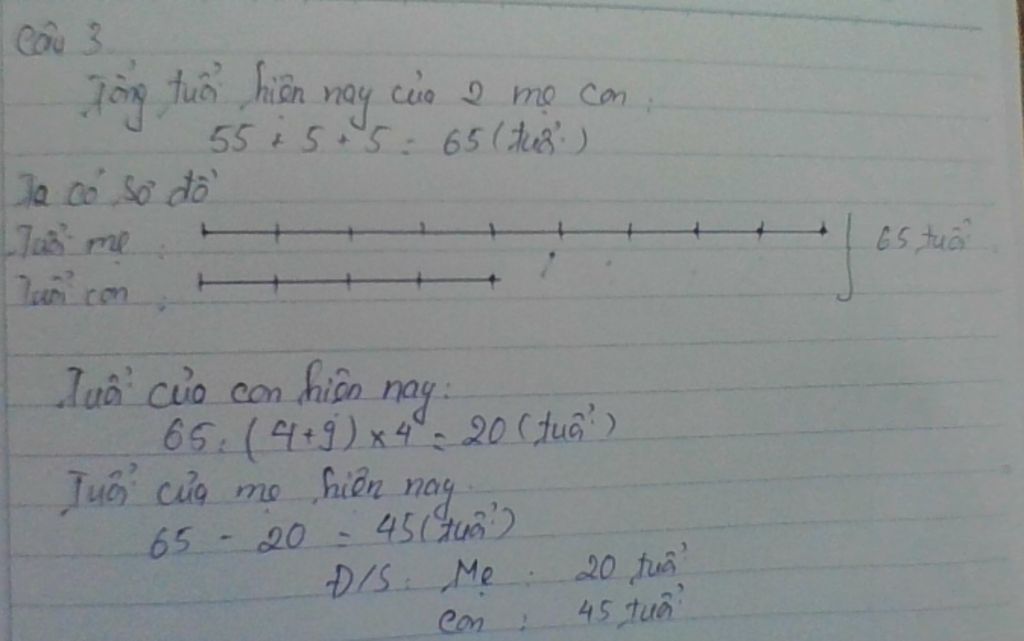 Câu 3
Tổng tuổi hiện nay của 2 mẹ con:
55 + 5 + 5 = 65 (tuổi)
Ta có sơ đồ
Tuổi mẹ : 65 tuổi
Tuổi con :
Tuổi của con hiện nay:
65 : (4+9) × 4 = 20 (tuổi)
Tuổi của mẹ hiện nay
65 - 20 = 45 (tuổi)
Đ/S: Mẹ : 20 tuổi
Con : 45 tuổi